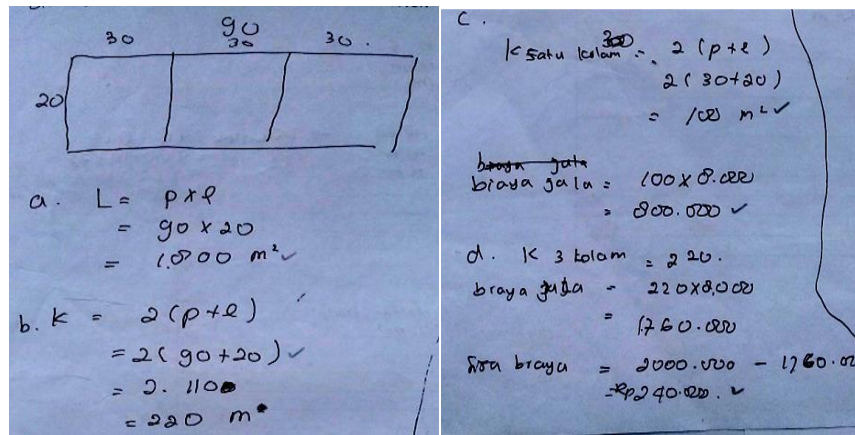 90
30 30 30.
20
a. L = p x l
= 90 x 20
= 1.800 m²
b. K = 2 (p + l)
= 2 ( 90 + 20 )
= 2. 110
= 220 m
C.
K satu kolam = 2 (p + l)
2 ( 30 + 20 )
= 100 m²
biaya jala = 100 x 8.000
= 800.000
d. K 3 kolam = 220.
biaya jala = 220 x 8,000
= 1.760.000
Sisa biaya = 2000.000 - 1760.00
= Rp 240.000.